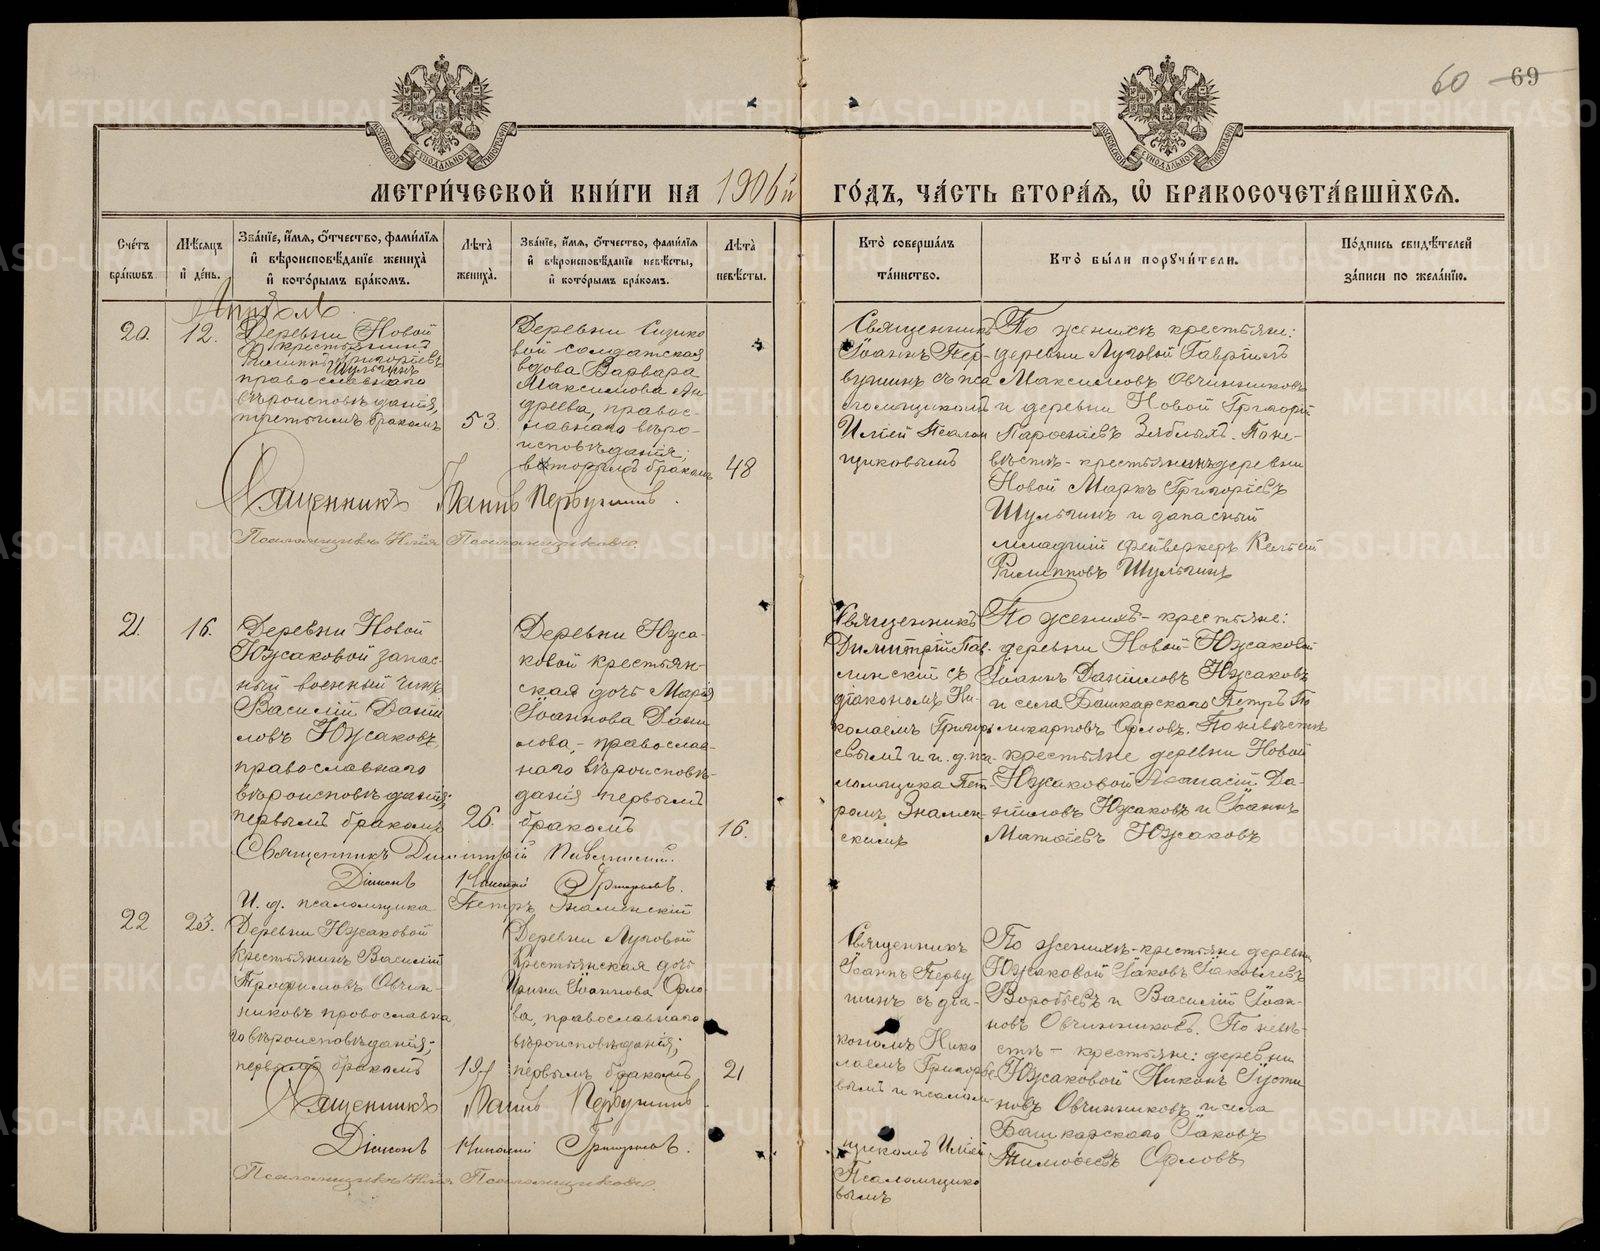 60 69
МЕТРИ́ЧЕСКОЙ КНИ́ГИ НА 1906й ГО́ДЪ, ЧА́СТЬ ВТОРА́Я, Ѡ҆ БРАКОСОЧЕТА́ВШИХСЯ.
Сче́тъ бра́кѡвъ.
Мѣ́сяцъ и҆ де́нь.
Зва́нїе, и҆́мя, ѻ҆́тчество, фами́лїя и҆ вѣроисповѣ́данїе жениха̀ и҆ кото́рымъ бра́комъ.
Лѣ́та жениха̀.
Зва́нїе, и҆́мя, ѻ҆́тчество, фами́лїя и҆ вѣроисповѣ́данїе невѣ́сты, и҆ кото́рымъ бра́комъ.
Лѣ́та невѣ́сты.
Кто̀ соверша́лъ та́инство.
Кто̀ бы́ли поручи́тели.
По́дпись свидѣ́телей за́писи по жела́нїю.
Апрѣль.
20.
12.
Деревни Новой
крестьянинъ
Филиппъ Григорiевъ
Шульгинъ
православнаго
вѣроисповѣданiя,
третьимъ бракомъ
53.
Деревни Сизико
вой солдатская
вдова Варвара
Максимова Ан
дреева, правос-
лавнаго вѣро-
исповѣданiя;
вторымъ бракомъ
48
Священникъ
Iоаннъ Пер-
вушинъ съ пса
ломщикомъ
Илiей Псалом
щиковымъ
По женихѣ крестьяне:
деревни Луговой Гаврiилъ
Максимовъ Овчинниковъ
и деревни Новой Григорiй
Парѳенiевъ Зяблыхъ. По не-
вѣстѣ - крестьянинъ деревни
Новой Маркъ Григорiевъ
Шульгинъ и запасный
младшiй фейверкеръ
Филипповъ Шульгинъ
Священникъ Iоаннъ Первушинъ.
Псаломщикъ Илiя Псаломщиковъ.
21.
16.
Деревни Новой
Южаковой запас-
ный военный чинъ
Василiй Данiи
ловъ Южаковъ,
православнаго
вѣроисповѣданiя;
первымъ бракомъ
26.
Деревни Южа-
ковой крестьян-
ская дочь Марiя
Iоаннова Дани
лова, - православ-
наго вѣроисповѣ-
данiя первымъ
бракомъ
16.
Священникъ
Димитрiй Пав-
линскiй съ
дiакономъ Ни-
колаемъ Григорь
евымъ и и. д. пса-
ломщика Пет-
ромъ Знамен-
скимъ
По женихѣ - крестьяне:
деревни Новой Южаковой
Iоаннъ Данiиловъ Южаковъ
и села Башкарскаго Петръ По
ликарповъ Орловъ. По невѣстѣ
- крестьяне деревни Новой
Южаковой Аѳанасiй Да-
нiиловъ Южаковъ и Iоаннъ
Матѳiевъ Южаковъ
Священникъ Димитрiй Павлинскiй.
Дiаконъ Николай Григорьевъ.
И. д. псаломщика Петръ Знаменскiй
22
23.
Деревни Южаковой
крестьянинъ Василiй
Трофимовъ Овчин-
никовъ православна
го вѣроисповѣданiя;
первымъ бракомъ
19
Деревни Луговой
крестьянская дочь
Ирина Iоаннова Орло
ва, православнаго
вѣроисповѣданiя;
первымъ бракомъ
21
Священникъ
Iоаннъ Перву
шинъ съ дiа-
кономъ Нико
лаемъ Григорье
вымъ и псалом-
щикомъ Илiей
Псаломщико
вымъ
По женихѣ - крестьяне деревни
Южаковой Iаковъ Iаковлевъ
Воробьевъ и Василiй Iоан-
новъ Овчинниковъ. По невѣ-
стѣ - крестьяне: деревни
Южаковой Никонъ Iусти
новъ Овчинниковъ и села
Башкарскаго Iаковъ
Тимоѳеевъ Орловъ
Священникъ Iоаннъ Первушинъ
Дiаконъ Николай Григорьевъ.
Псаломщикъ Илiя Псаломщиковъ.
METRIKI.GASO-URAL.RU